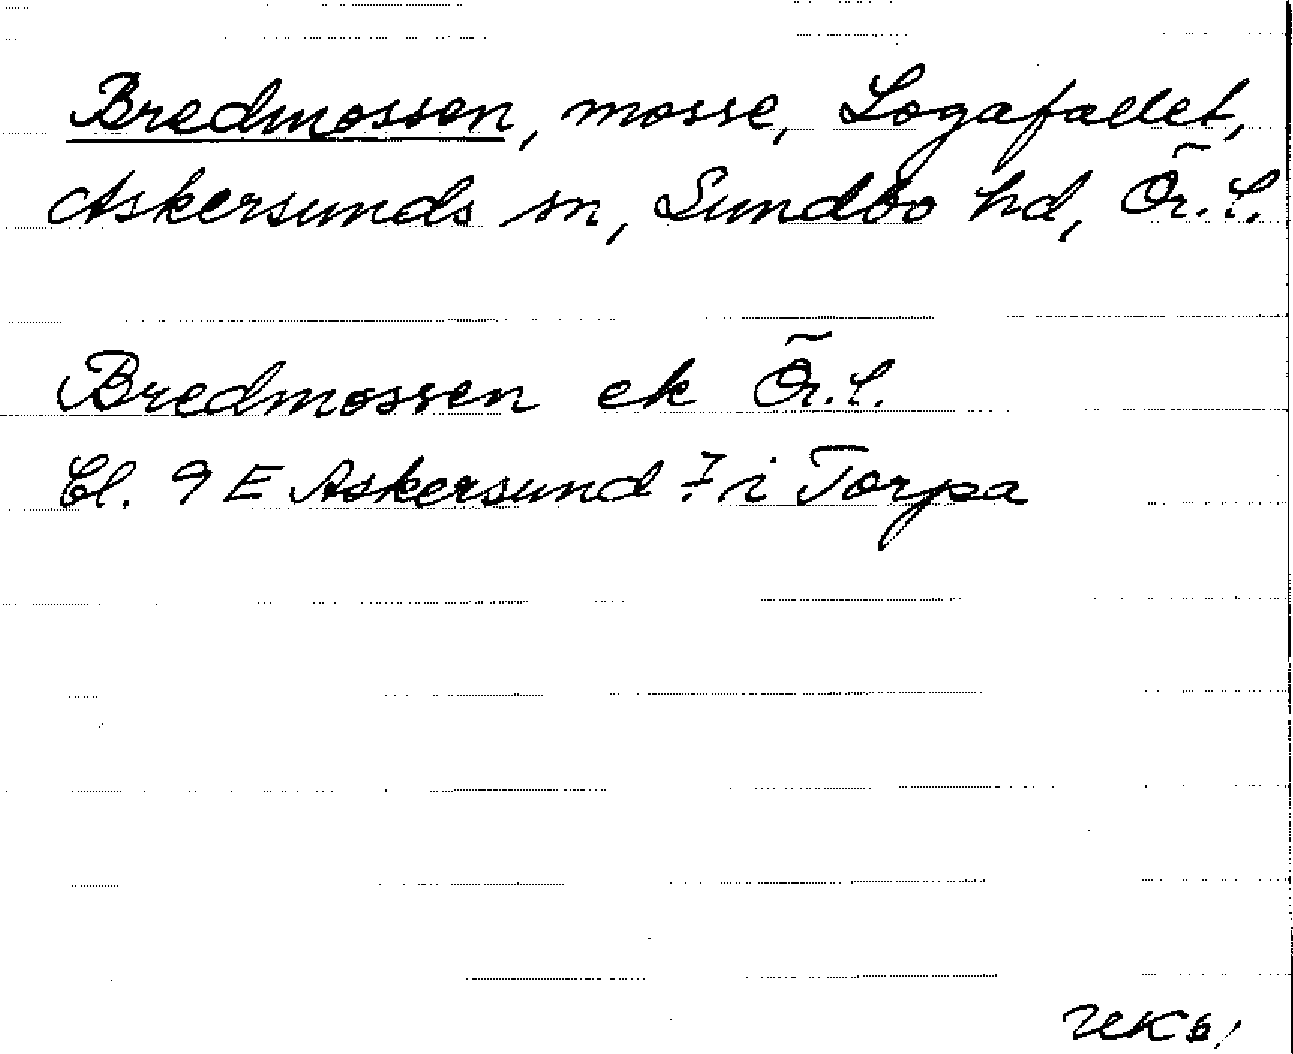 Bredmossen, mosse, Logafallet,
Askersunds sn, Sundbo hd, Ör. l.
Bredmossen ek Ör. l.
Bl. 9 E Askersund 7 i Torpa